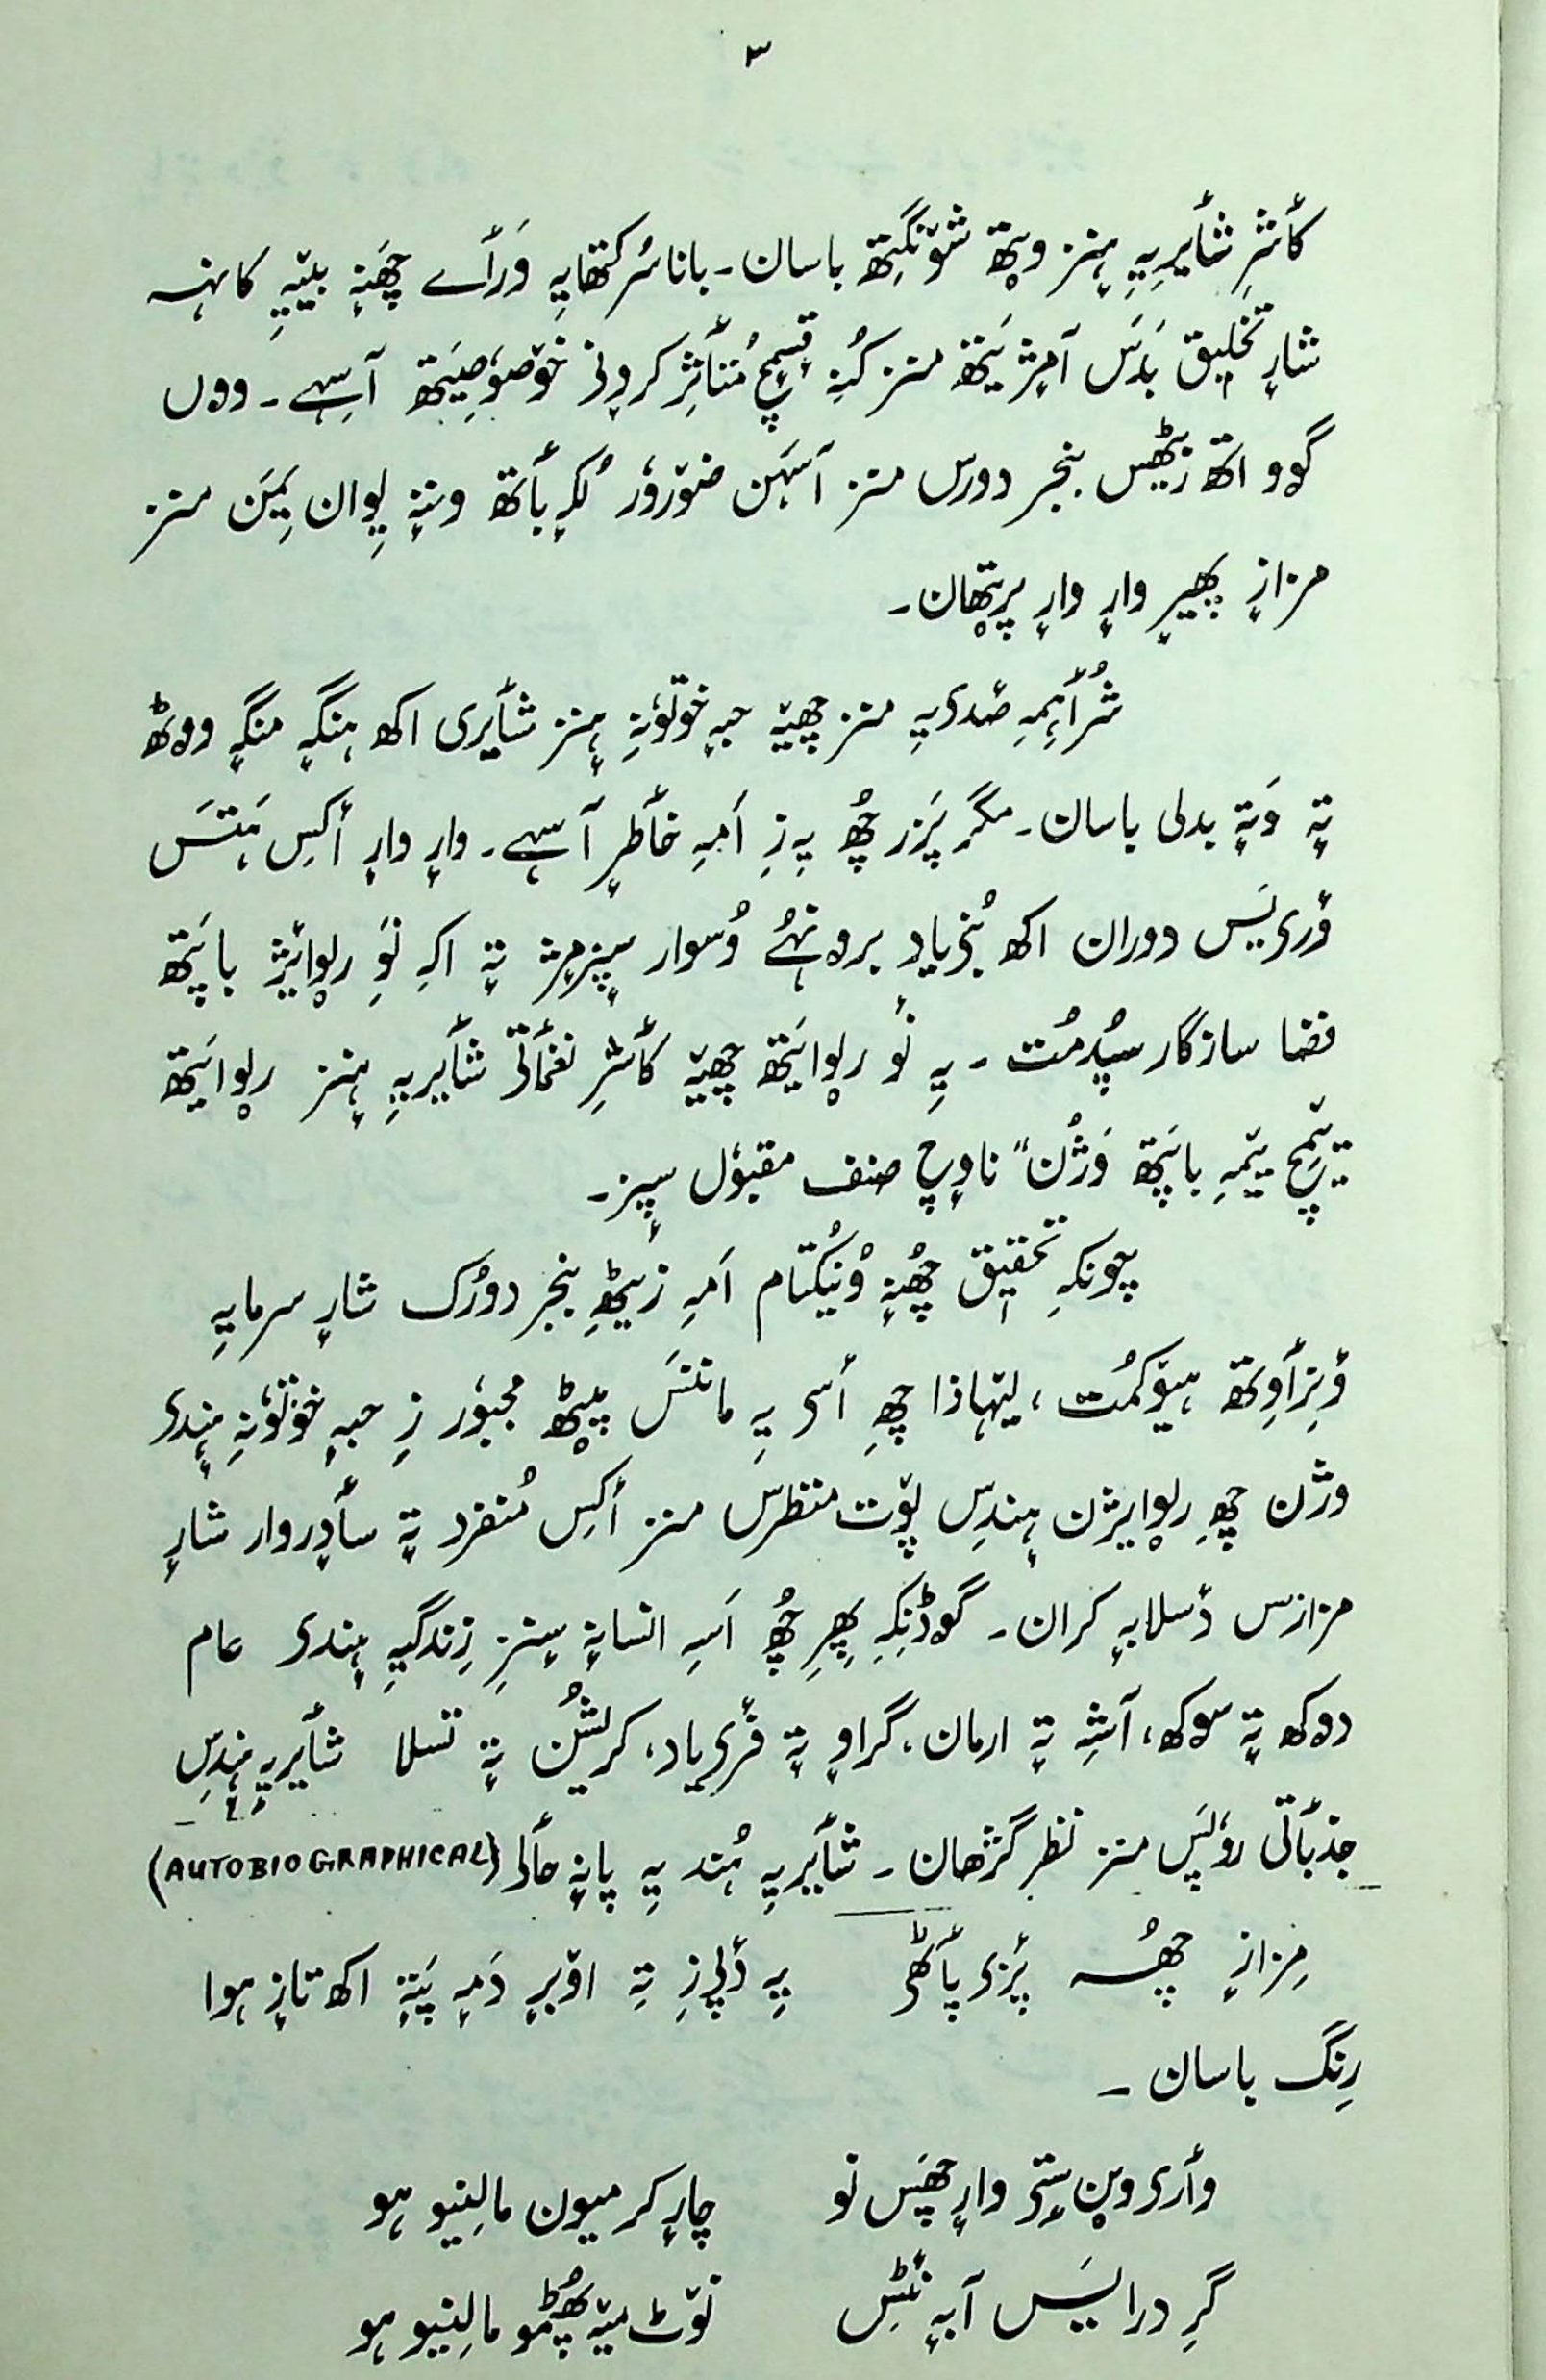 ٣
کأشرِ شأیرِیہِ ہٕنز وپتھ شۆنگِتھ باسان۔ باناسُر کتھایہِ وَرأے چھَنہٕ بییہِ کانہہ
شارٕ تخلیق یَلہِ آمٕژ یَتھ منز کُنہِ قسمٕچ مُتأثِر کروٕنی خۆصوٗصِیَتھ آسِہے۔ ووں
گوو اتھ زیٹھِس بنجر دورس منز آسَہن ضۆروٗر لُکہٕ بأتھ وننہٕ یِوان یِمَن منز
مزازٕ پھیرٕ وارٕ وارٕ پرٛتھان۔
شُرأہِمہِ صٔدی یہِ منز چھیہٚ حبہٕ خوتوٗنہِ ہٕنز شأیری اکھ ہنگہٕ منگہٕ ووٹھ
تہٕ وَتہٕ بدلی باسان۔ مگر پَزر چھُ یہِ زِ اَمہِ خأطرٕ آسہِ۔ وارٕ وارٕ أکِس ہَتَس
ؤری یَس دوران اکھ بُنی یاد برونہہ وُسوار سپٕزمٕژ تہٕ اکہِ نَوِ رِوایٔژ باپَتھ
فضا سازگار سپُدمُت۔ یہِ نَو رِوایَتھ چھیہٚ کأشرِ نغمأتی شأیریہِ ہٕنز رِوایَتھ
تہٕ یمیچ ییٚمہِ باپَتھ وَژُن" ناوٕچ صنف مقبوٗل سپٕز۔
چونکہِ تحقیٖق چھُنہٕ وُنیُکتام اَمہِ زیٹھہِ بنجر دورُک شارٕ سرمایہِ
ؤتِرأوِتھ ہیوٚکمُت، لیٚہاذا چھِ أسی یہِ ماننَس پیٚٹھ مجبوٗر زِ حبہٕ خوتوٗنہِ ہٕندی
وژن چھِ رِوایژن ہٕندِس پۆت منظرس منز أکِس مُنفرد تہٕ سأدٕروار شارٕ
مزازس دٔسلابہٕ کران۔ گوڈنِکہِ پھِرِ چھُ اَسہِ انسانہٕ سٕنزِ زِندگیہِ ہٕندی عام
دوکھ تہٕ سوکھ، آشہِ تہٕ ارمان، گراوٕ تہٕ فٔری یاد، کرٛیشُن تہٕ تسلا شأیریہِ ہٕندِس
جذبأتی روٗپَس منز نظر گژھان۔ شأیریہِ ہُند یہِ پانہٕ حألی (AUTOBIOGRAPHICAL)
مِزازٕ چھُسہ پٔزی پأٹھی یہِ دٔلی زِ تہِ اوٚبرٕ دَمہٕ پَتہٕ اکھ تازٕ ہوا
رِنگ باسان۔
وأری وین سٟتی وارٕ چھَس نو چارٕ کر میون مالِنیو ہو
گرِ درایَس آبہٕ نٔٹِس نۆٹ میہٚ پھُٹمو مالِنیو ہو